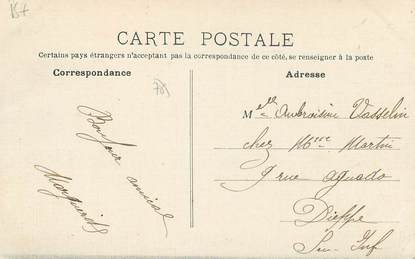 CARTE POSTALE
Certains pays étrangers n'acceptant pas la correspondance de ce côté, se renseigner à la poste
Correspondance
Adresse
Bonjour amical
Marguerite
Melle Ambroisine Vasselin
chez Mme Martin
9 rue aguado
Dieppe
Sne Inf